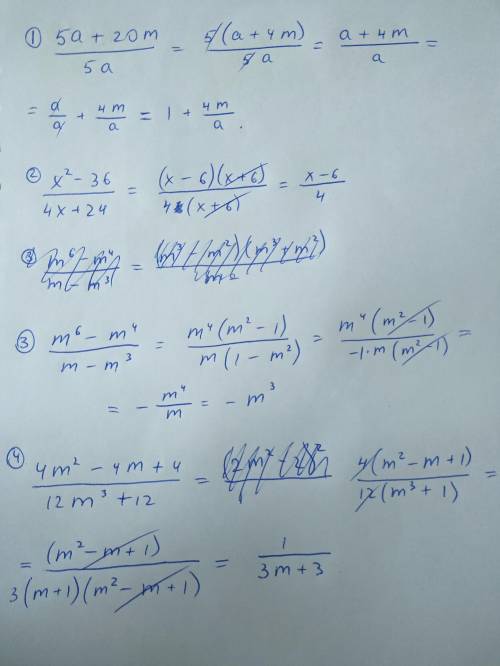 ① (5a + 20m)/(5a) = (5(a + 4m))/(5a) = (a + 4m)/a =
= a/a + 4m/a = 1 + 4m/a.
② (x² - 36)/(4x + 24) = ((x - 6)(x + 6))/(4(x + 6)) = (x - 6)/4
③ (m⁶ - m⁴)/(m - m³) =
③ (m⁶ - m⁴)/(m - m³) = (m⁴(m² - 1))/(m(1 - m²)) = (m⁴(m² - 1))/(-1·m(m² - 1)) =
= - m⁴/m = - m³
④ (4m² - 4m + 4)/(12m³ + 12) = (4(m² - m + 1))/(12(m³ + 1)) =
= (m² - m + 1)/(3(m + 1)(m² - m + 1)) = 1/(3m + 3)